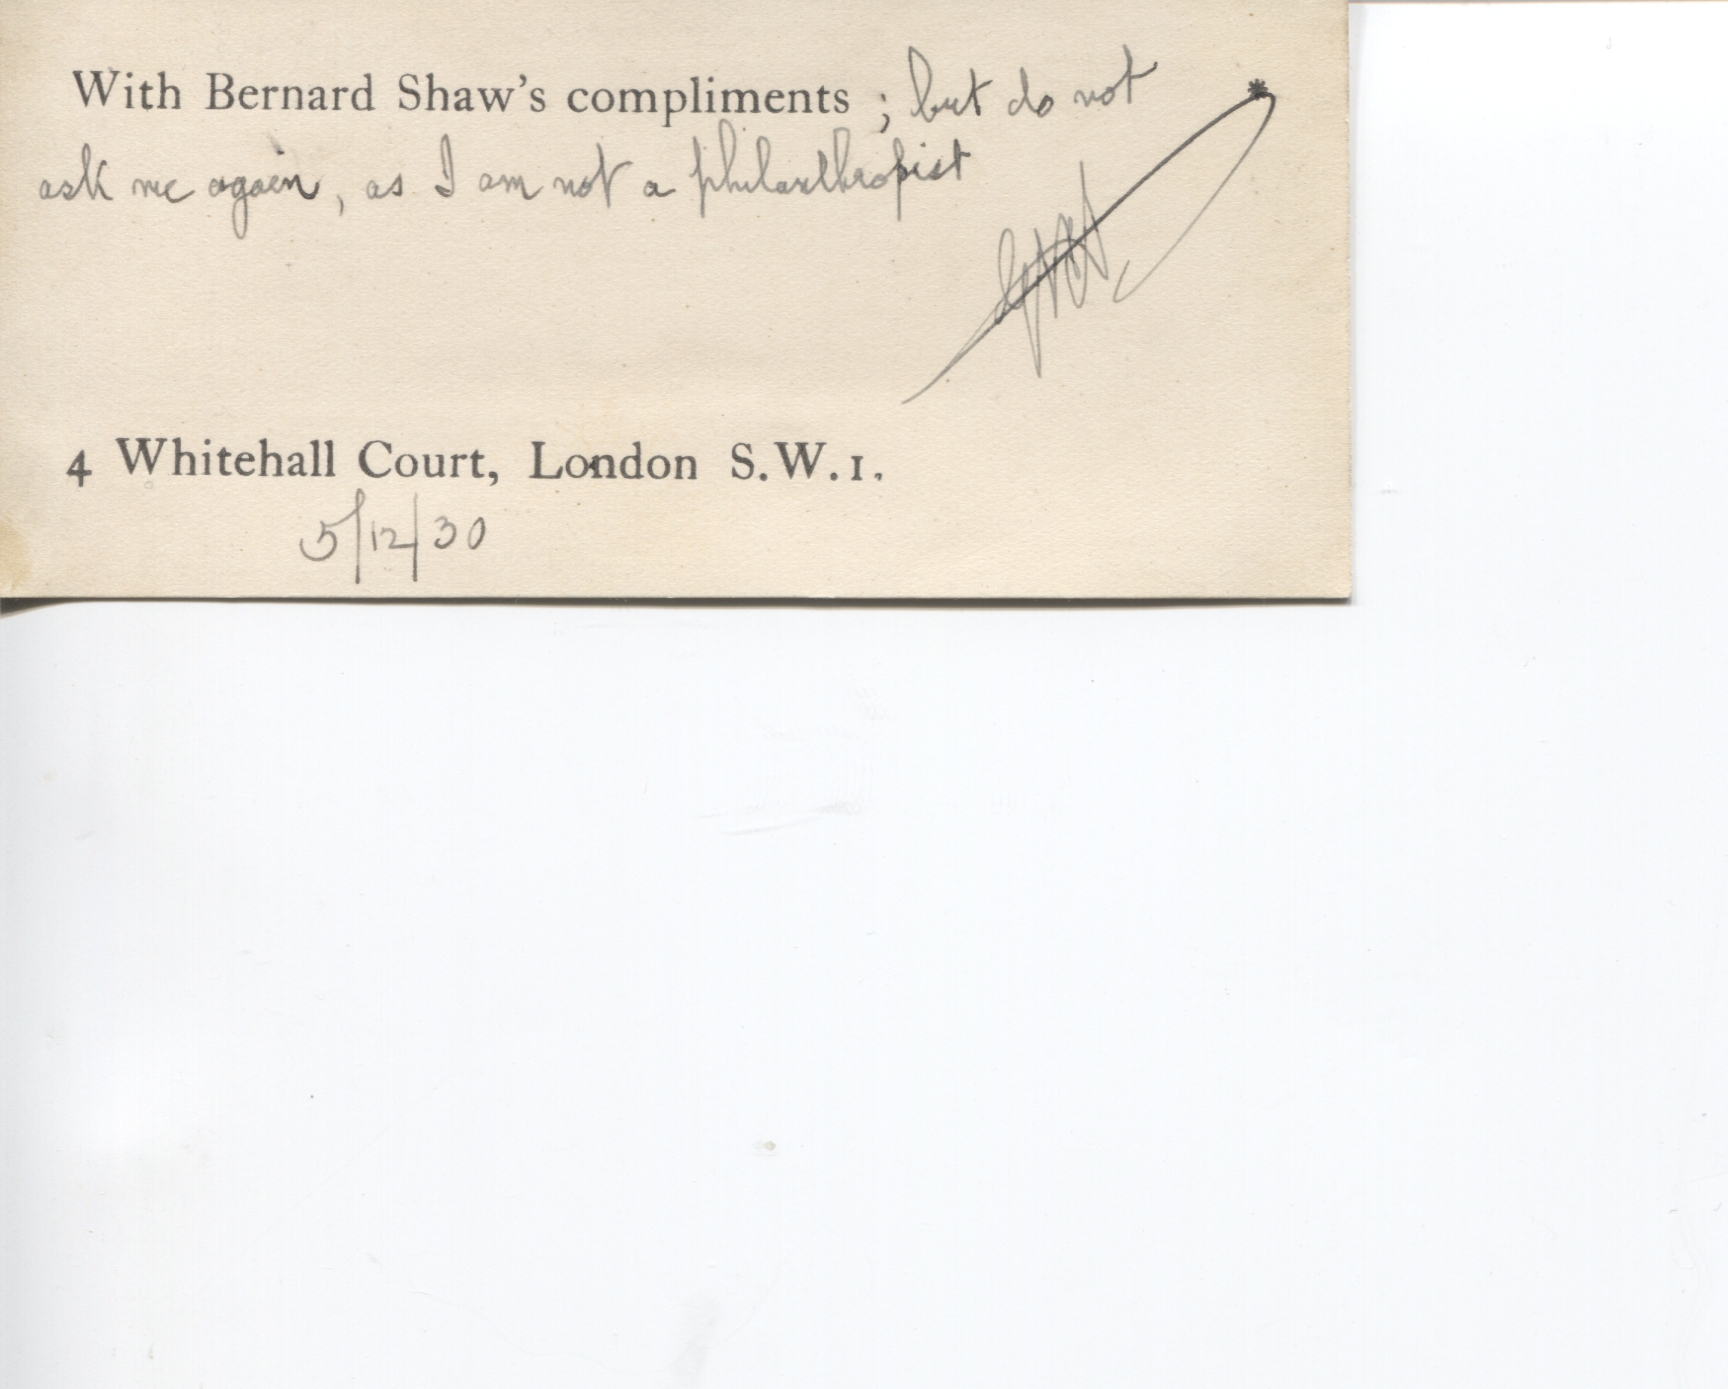 With Bernard Shaw's compliments ; but do not
ask me again, as I am not a philanthropist
4 Whitehall Court, London S.W.1.
5/12/30